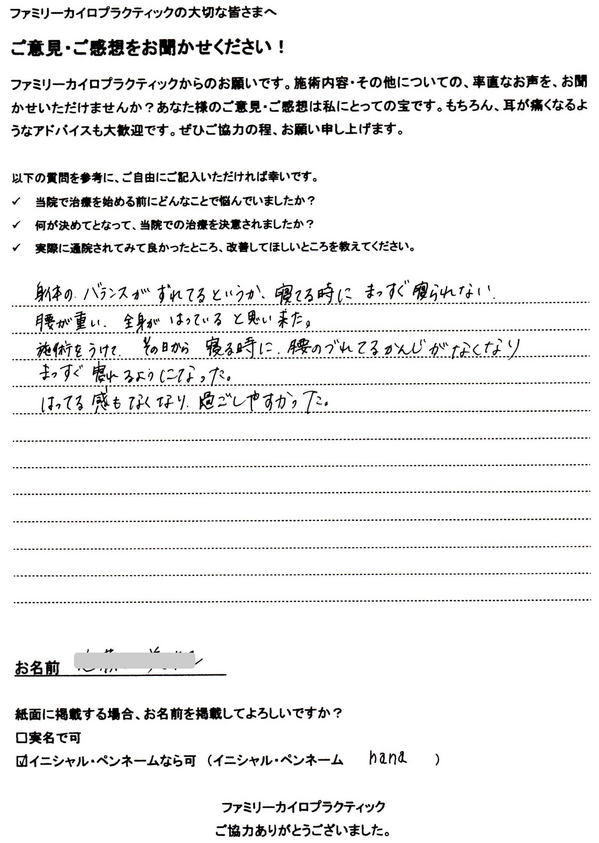 ファミリーカイロプラクティックの大切な皆さまへ
ご意見・ご感想をお聞かせください！
ファミリーカイロプラクティックからのお願いです。施術内容・その他についての、率直なお声を、お聞
かせいただけませんか？あなた様のご意見・ご感想は私にとっての宝です。もちろん、耳が痛くなるよ
うなアドバイスも大歓迎です。ぜひご協力の程、お願い申し上げます。
以下の質問を参考に、ご自由にご記入いただければ幸いです。
✓ 当院で治療を始める前にどんなことで悩んでいましたか？
✓ 何が決めてとなって、当院での治療を決意されましたか？
✓ 実際に通院されてみて良かったところ、改善してほしいところを教えてください。
身体の バランスが ずれてるというか、寝てる時に まっすぐ寝られない.
腰が重い. 全身が はっている と思い来た。
施術をうけて. その日から 寝る時に. 腰のづれてるかんじがなくなり
まっすぐ 寝れるようになった。
はってる 感もなくなり. 過ごしやすかった。
お名前
紙面に掲載する場合、お名前を掲載してよろしいですか？
□実名で可
☑イニシャル・ペンネームなら可 （イニシャル・ペンネーム hana ）
ファミリーカイロプラクティック
ご協力ありがとうございました。